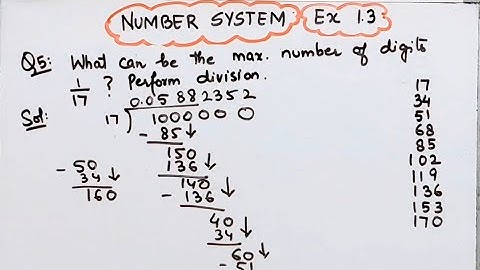 NUMBER SYSTEM Ex 1.3
Q5: What can be the max. number of digits
1/17 ? Perform division.
0.05882352
Sol: 17 ) 100000 0
- 85 ↓
150
136 ↓
140
- 136 ↓
40
34 ↓
60
- 51
- 50
34 ↓
160
17
34
51
68
85
102
119
136
153
170